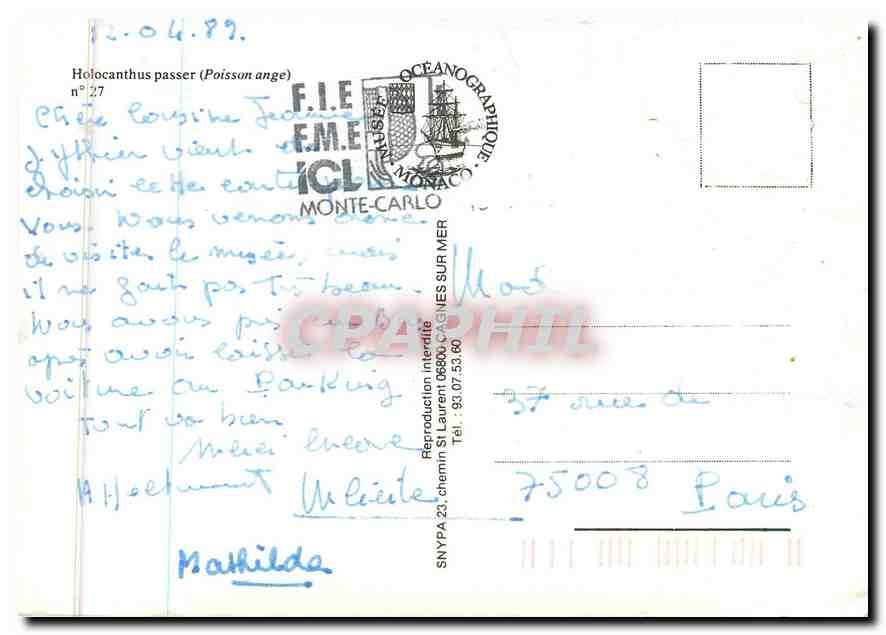 12.04.89.
Holocanthus passer (Poisson ange)
n° 27
F.I.E
F.M.E
ICL
MONTE-CARLO
MUSÉE OCÉANOGRAPHIQUE · MONACO ·
Chère Cousine Jeanne
vient
choisi cette carte
Vous. Nous venons donc
de visiter le musée, mais
il ne fait pas très beau.
Nous avons pris
après avoir laissé la
voiture au Parking
tout va bien
Merci encore
Affectueusement
Mathilda
CPAPHIL
Reproduction interdite
SNYPA 23, chemin St Laurent 06800 CAGNES SUR MER
Tél. : 93.07.53.60
37 rue de
75008 Paris